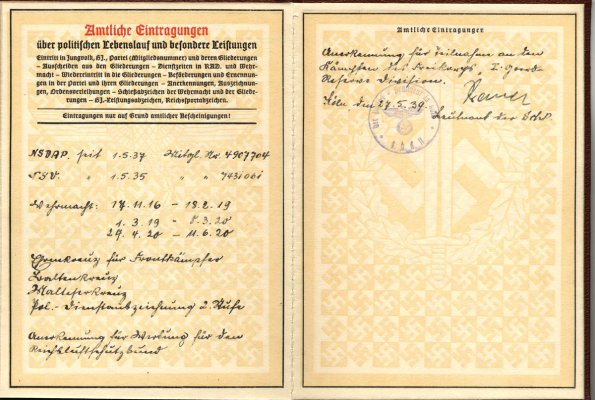 Amtliche Eintragungen
über politischen Lebenslauf und besondere Leistungen
Eintritt in Jungvolk, HJ., Partei (Mitgliedsnummer) und deren Gliederungen
– Ausscheiden aus den Gliederungen – Dienstzeiten in RAD. und Wehr-
macht – Wiedereintritt in die Gliederungen – Beförderungen und Ernennun-
gen in der Partei und ihren Gliederungen – Anerkennungen, Auszeichnun-
gen, Ordensverleihungen – Schießabzeichen der Wehrmacht und der Gliede-
rungen – HJ.-Leistungsabzeichen, Reichssportabzeichen.
Eintragungen nur auf Grund amtlicher Bescheinigungen!
NSDAP. seit 1.5.37 Mitgl. Nr. 4907704
N.S.V. " 1.5.35 " " 7431061
Wehrmacht: 17.11.16 – 13.2.19
1.3.19 – 8.3.20
29.4.20 – 11.6.20
Ehrenkreuz für Frontkämpfer
Baltenkreuz
Malteserkreuz
Pol.-Dienstauszeichnung 2. Stufe
Anerkennung für Werbung für den
Reichsluftschutzbund
Amtliche Eintragungen
Anerkennung für Teilnahme an den
Kämpfen des Freikorps "I. Garde-
Reserve Division.
Köln den 27.5.39.
Leutnant der